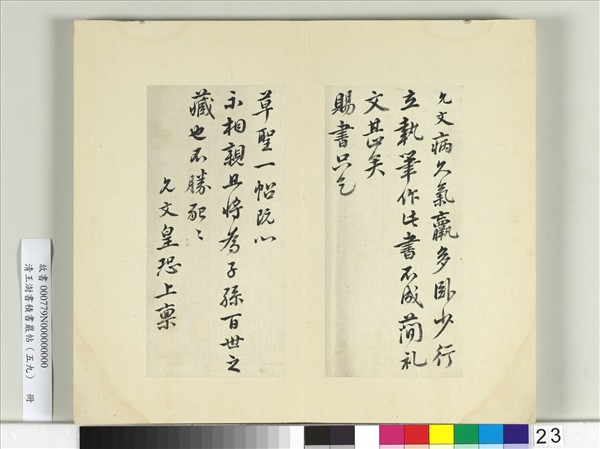 允文病久氣羸多臥少行
立執筆作此書不成蕳礼
文甚矣
賜書只乞
草聖一帖既以
示相親且將為子孫百世之
藏也不勝
允文皇恐上稟
故書 000779N000000000
清王澍書積書巖帖(五九) 冊
23